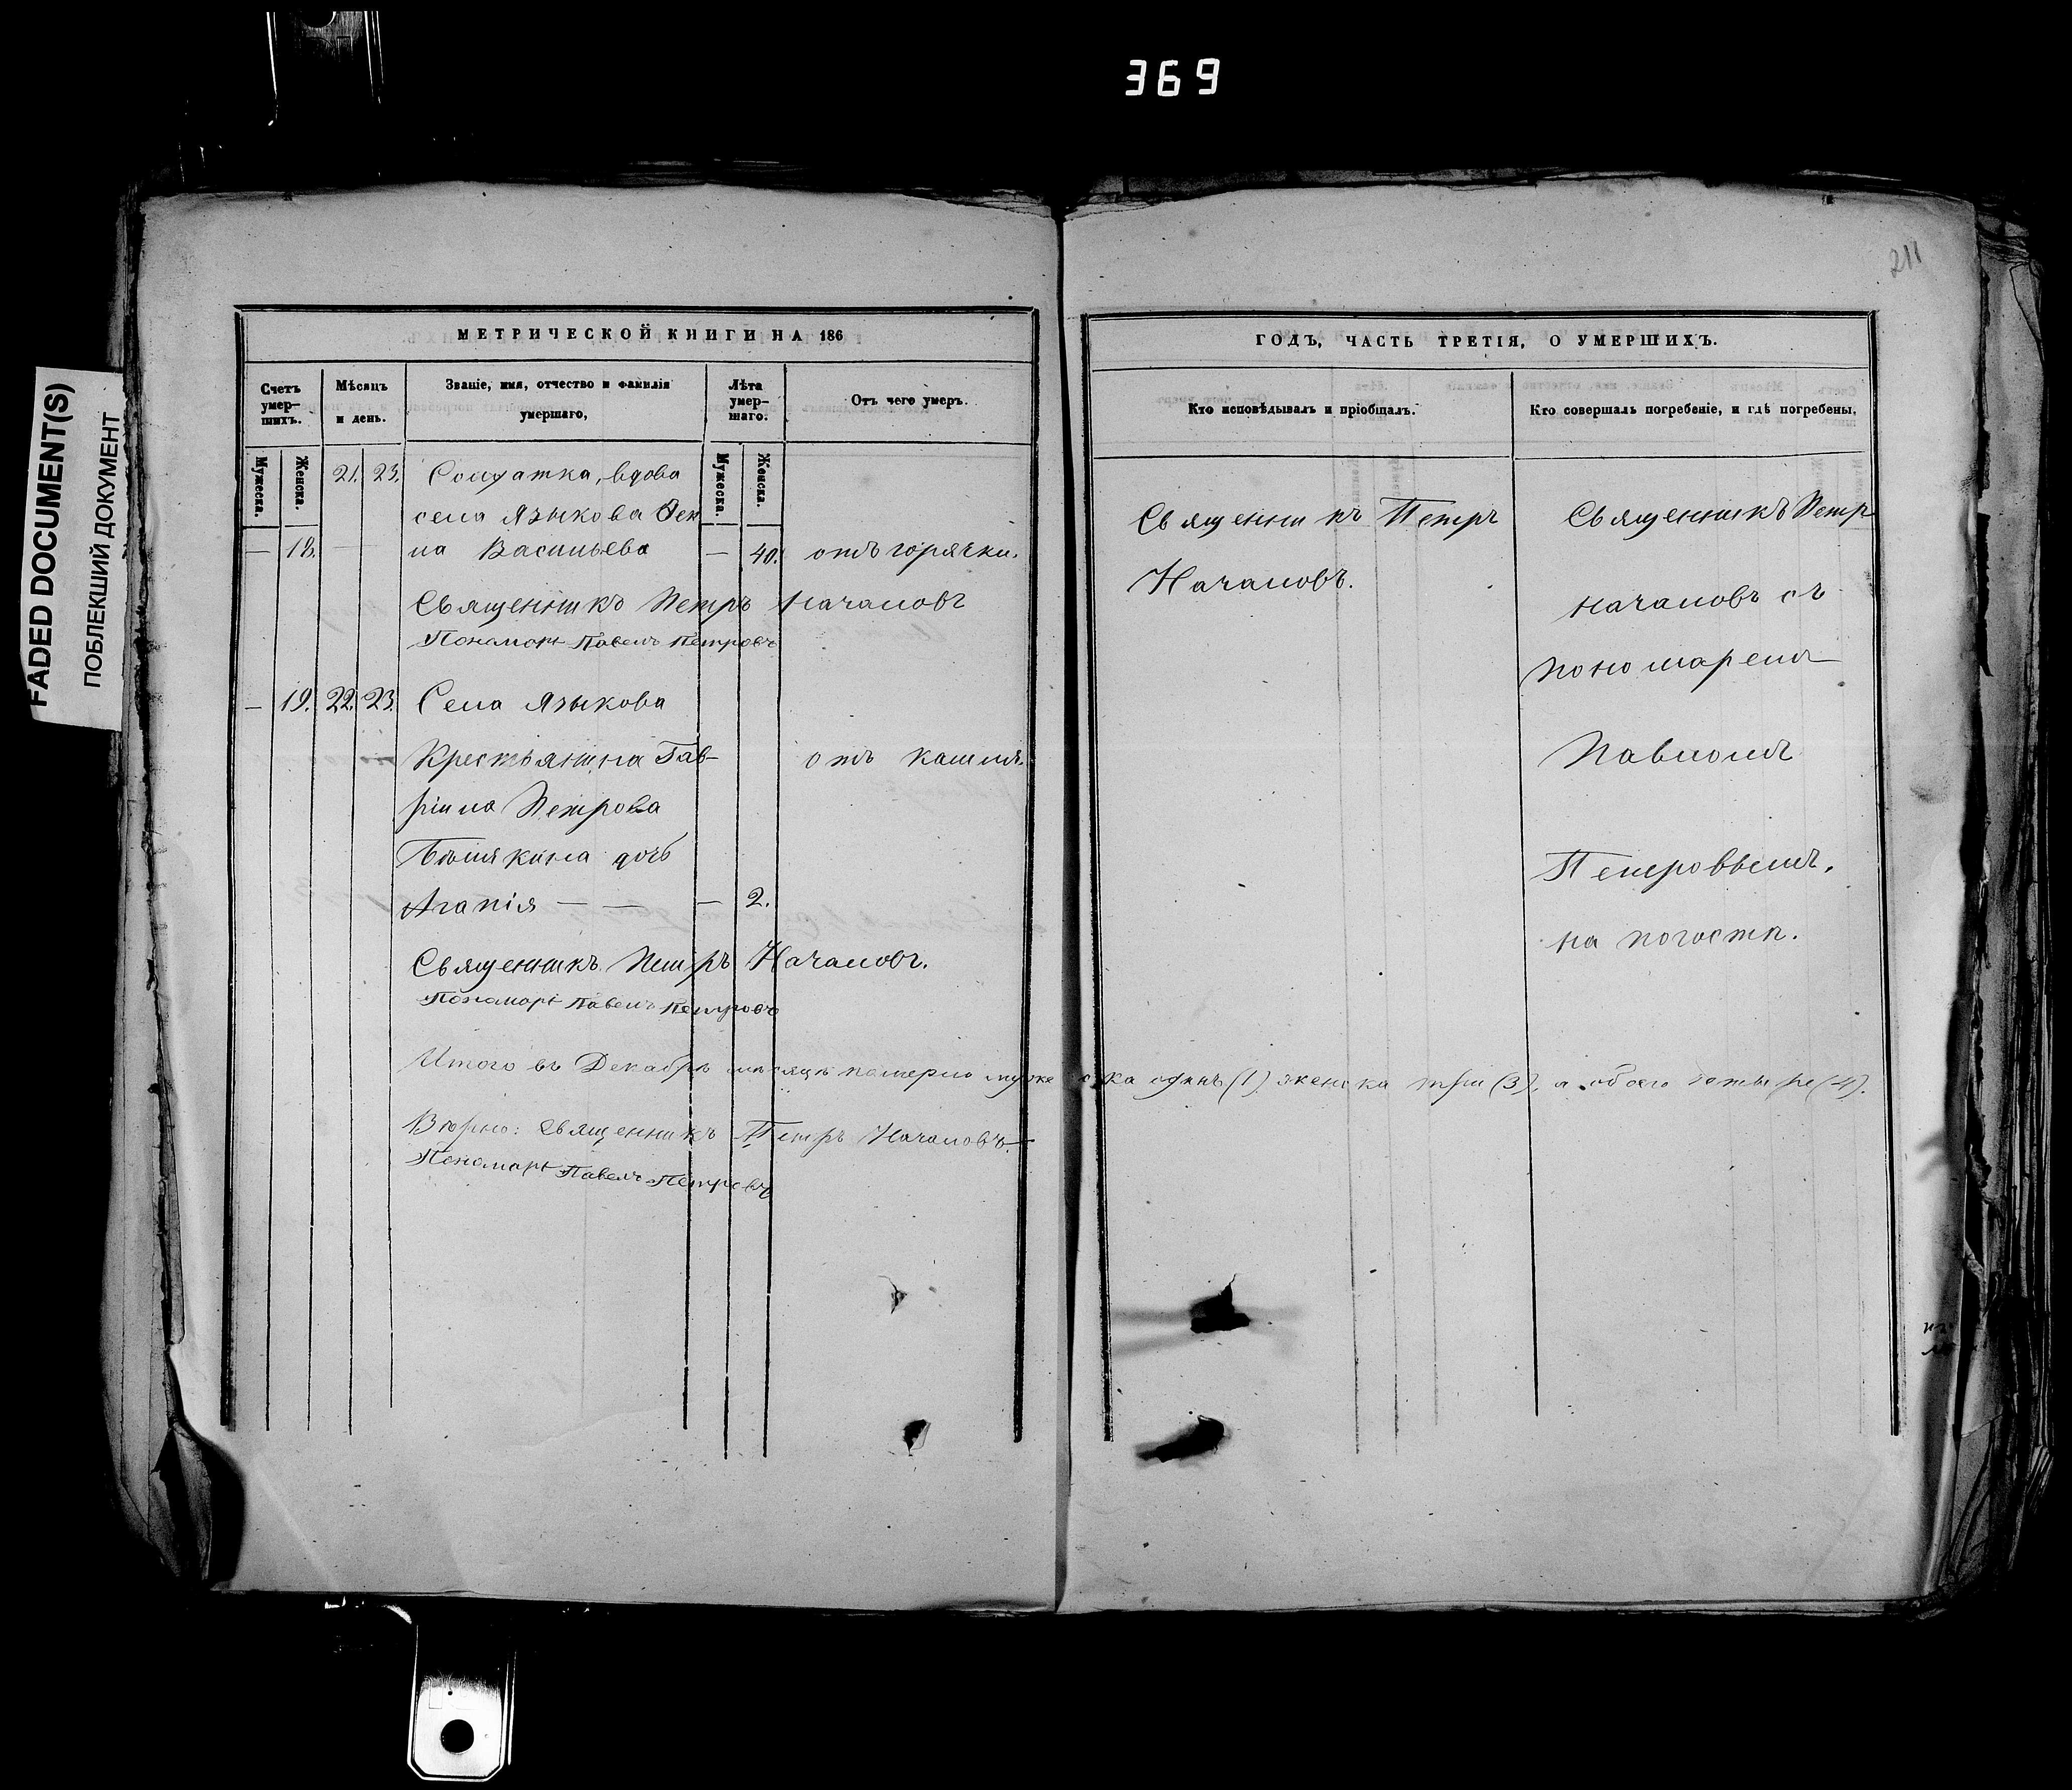 369
FADED DOCUMENT(S)
ПОБЛЕКШИЙ ДОКУМЕНТ
211
МЕТРИЧЕСКОЙ КНИГИ НА 186
Счетъ умер-шихъ.
Мѣсяцъ и день.
Званіе, имя, отчество и фамилія умершаго,
Лѣта умер-шаго.
Отъ чего умеръ.
Мужеска.
Женска.
Мужеска.
Женска.
21. 23. Солдатка, вдова
села Языкова
— 18. — — Васильева — 40. отъ горячки.
Священникъ Петръ Началовъ
Пономарь Павелъ Петровъ
— 19. 22. 23. Села Языкова
Крестьянина Гав-
отъ кашля.
ріила Петрова
дочь
Агапія — — — 2.
Священникъ Петръ Началовъ.
Пономарь Павелъ Петровъ
Итого въ Декабрѣ мѣсяцѣ померло мужеска одинъ (1) женска три (3), а обоего четыре (4).
Вѣрно: Священникъ Петръ Началовъ.
Пономарь Павелъ Петровъ
ГОДЪ, ЧАСТЬ ТРЕТІЯ, О УМЕРШИХЪ.
Кто исповѣдывалъ и пріобщалъ.
Кто совершалъ погребеніе, и гдѣ погребены.
Священникъ Петръ
Началовъ.
Священникъ Петръ
Началовъ съ
пономаремъ
Павломъ
Петровымъ.
на погостѣ.